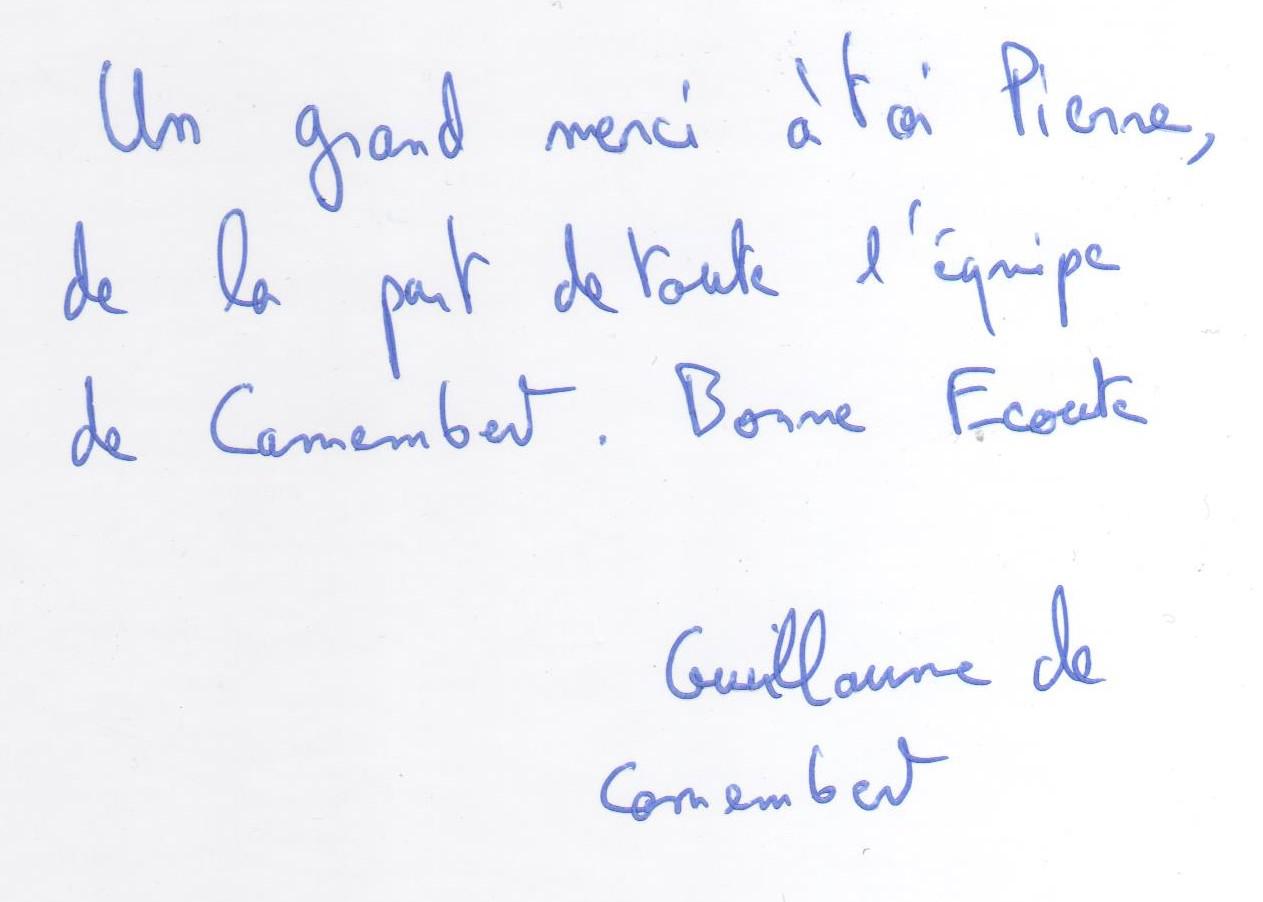 Un grand merci à toi Pierre,
de la part de toute l'équipe
de Camembert. Bonne Ecoute
Guillaume de
Camembert